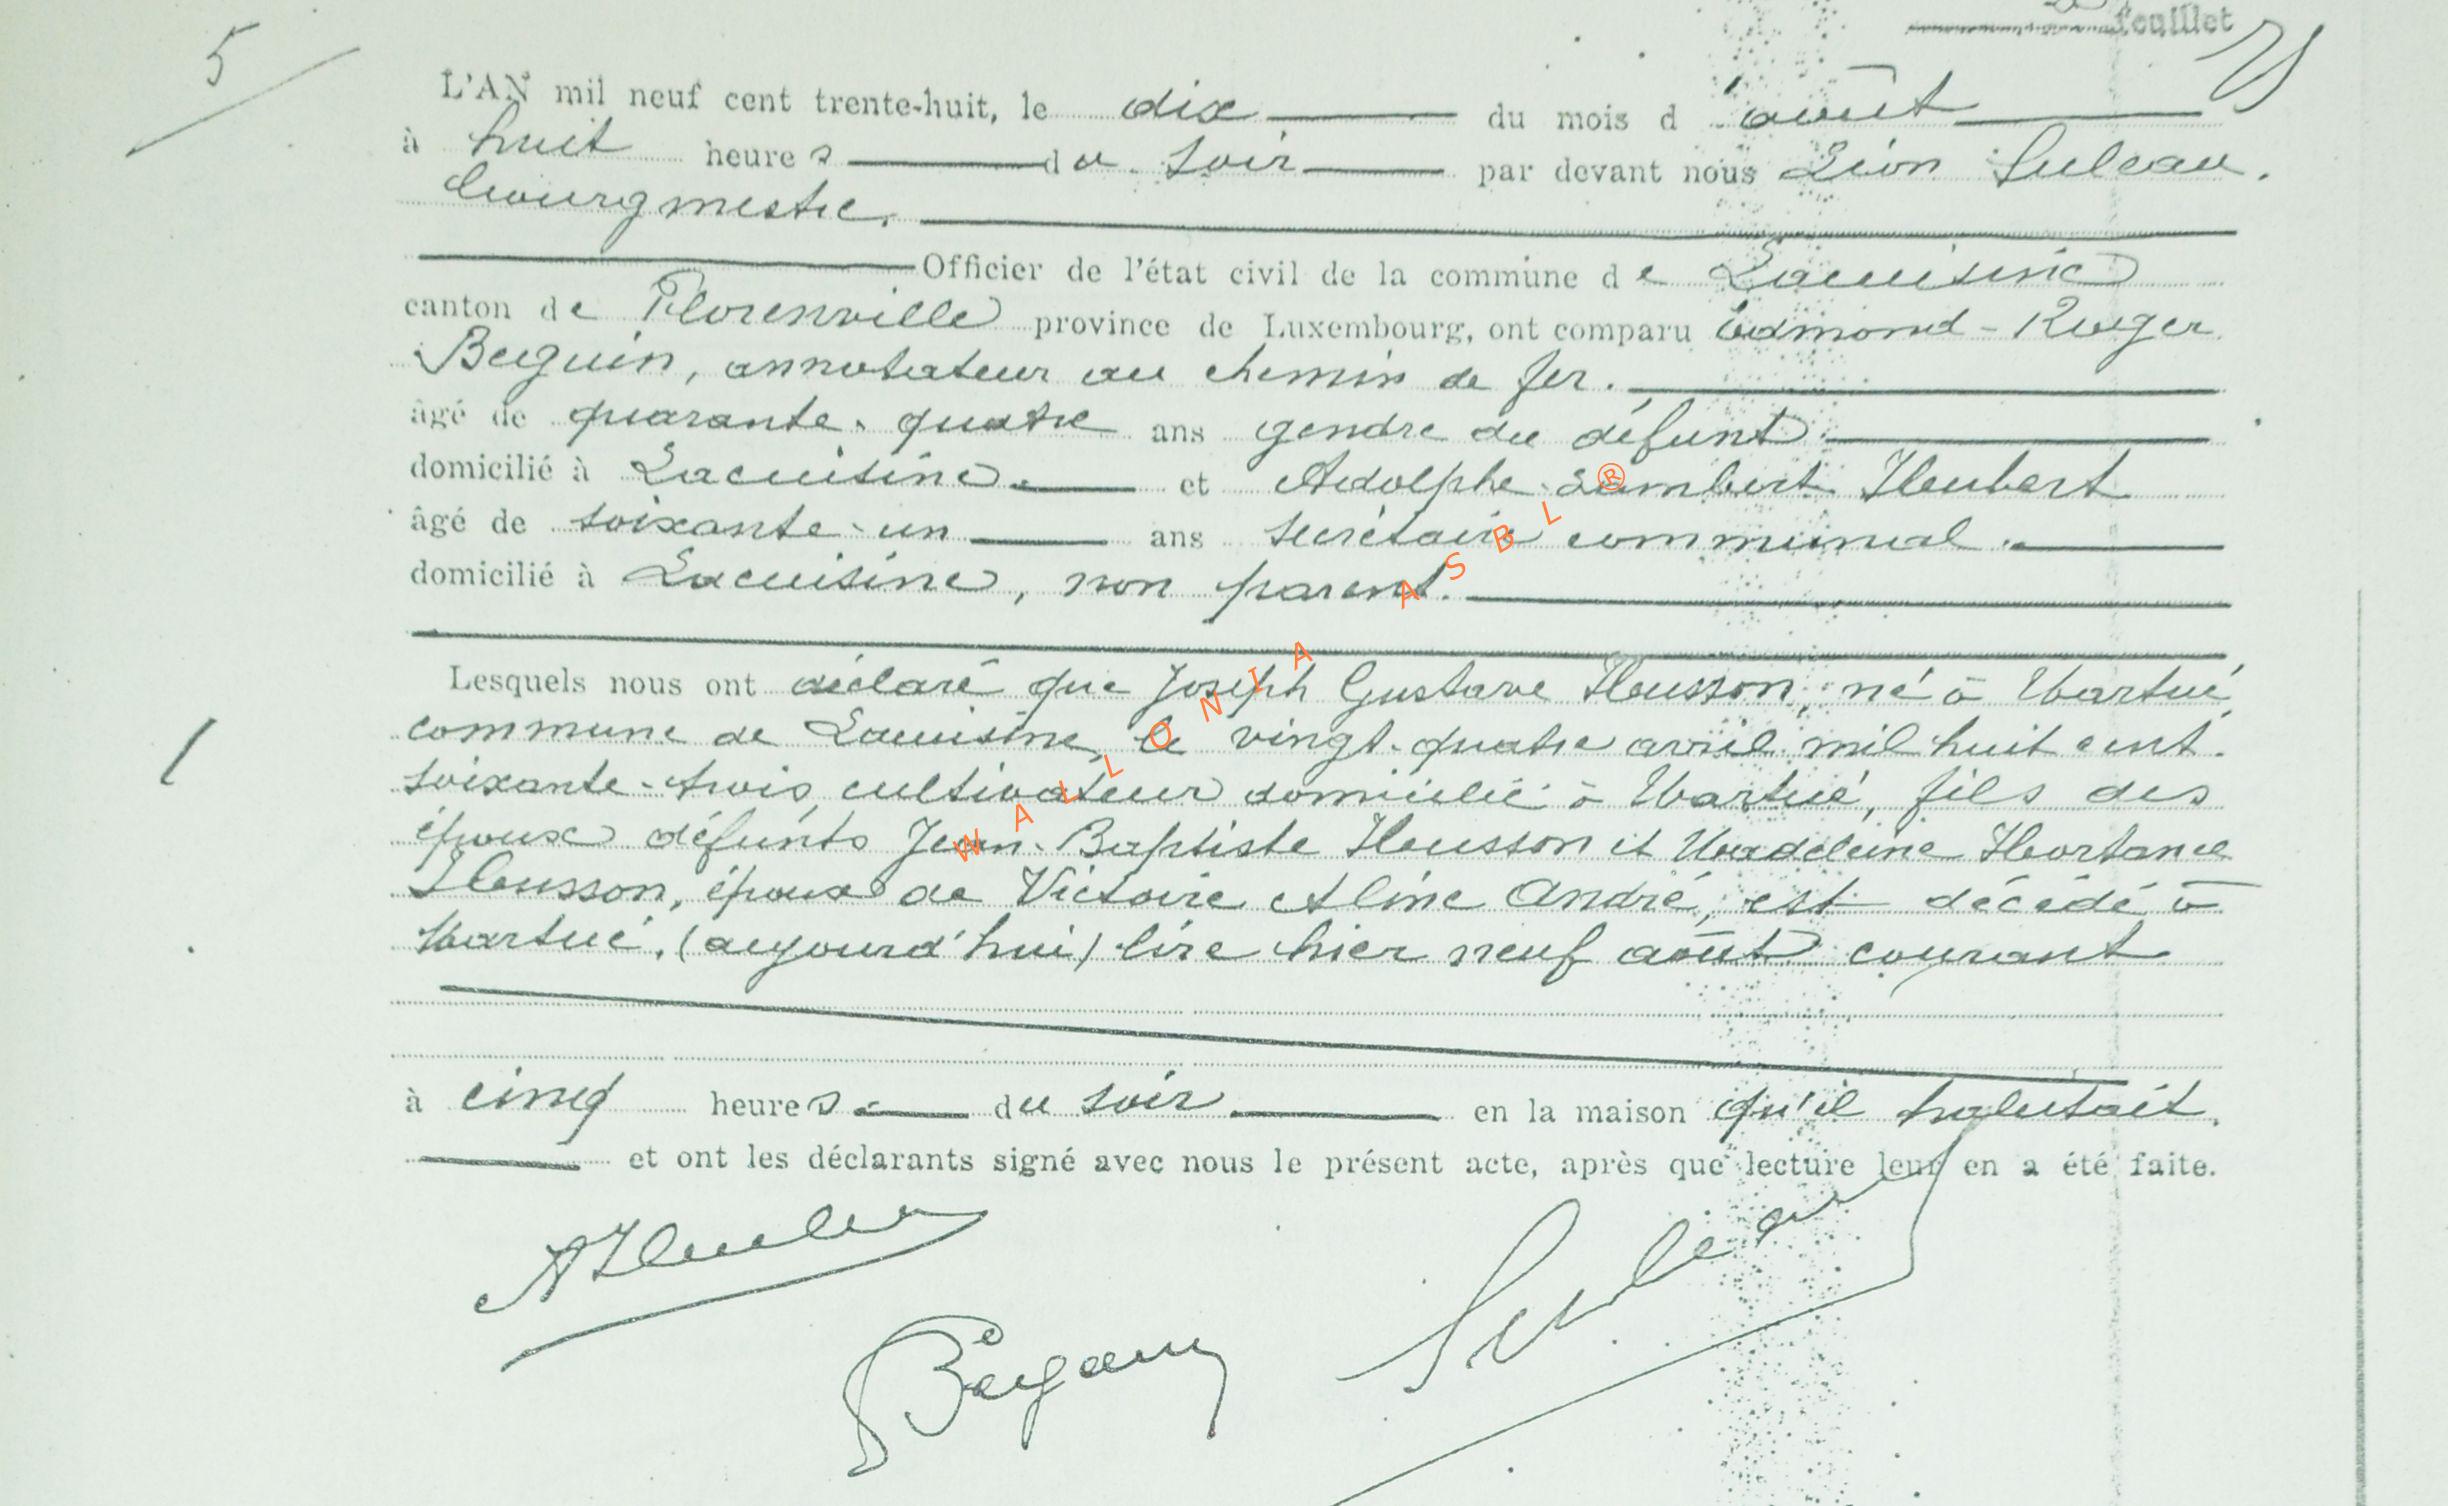 feuillet
5
L'AN mil neuf cent trente-huit, le dix du mois d'août
à huit heures du soir par devant nous Léon Suleau.
bourgmestre.
Officier de l'état civil de la commune de Lacuisine
canton de Florenville province de Luxembourg, ont comparu Edmond-Roger
Beguin, annotateur au chemin de fer.
âgé de quarante-quatre ans gendre du défunt.
domicilié à Lacuisine. et Adolphe-Lambert Hubert
âgé de soixante-un ans secrétaire communal.
domicilié à Lacuisine, non parent.
Lesquels nous ont déclaré que Joseph Gustave Husson, né à Martué,
commune de Lacuisine, le vingt-quatre avril mil huit cent
soixante-trois, cultivateur domicilié à Martué, fils des
époux défunts Jean-Baptiste Husson et Madeleine Hortance
Husson, époux de Victoire Aline André, est décédé à
Martué, (aujourd'hui) lire hier neuf août courant
à cinq heures du soir en la maison qu'il habitait,
et ont les déclarants signé avec nous le présent acte, après que lecture leur en a été faite.
Suleau
WALLONIA ASBL®